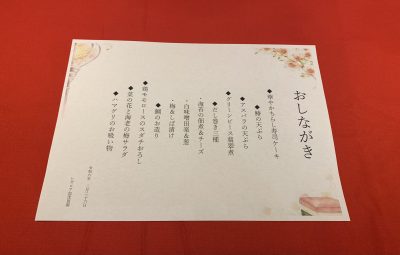 おしながき
◆華やかちらし寿司ケーキ
◆鰆の天ぷら
◆アスパラの天ぷら
◆グリーンピース翡翠煮
◆だし巻き三種
・海苔の佃煮&チーズ
・白味噌田楽&葱
・梅&しば漬け
◆鯛のお造り
◆鶏モモロースのスダチおろし
◆菜の花と海老の梅サラダ
◆ハマグリのお吸い物